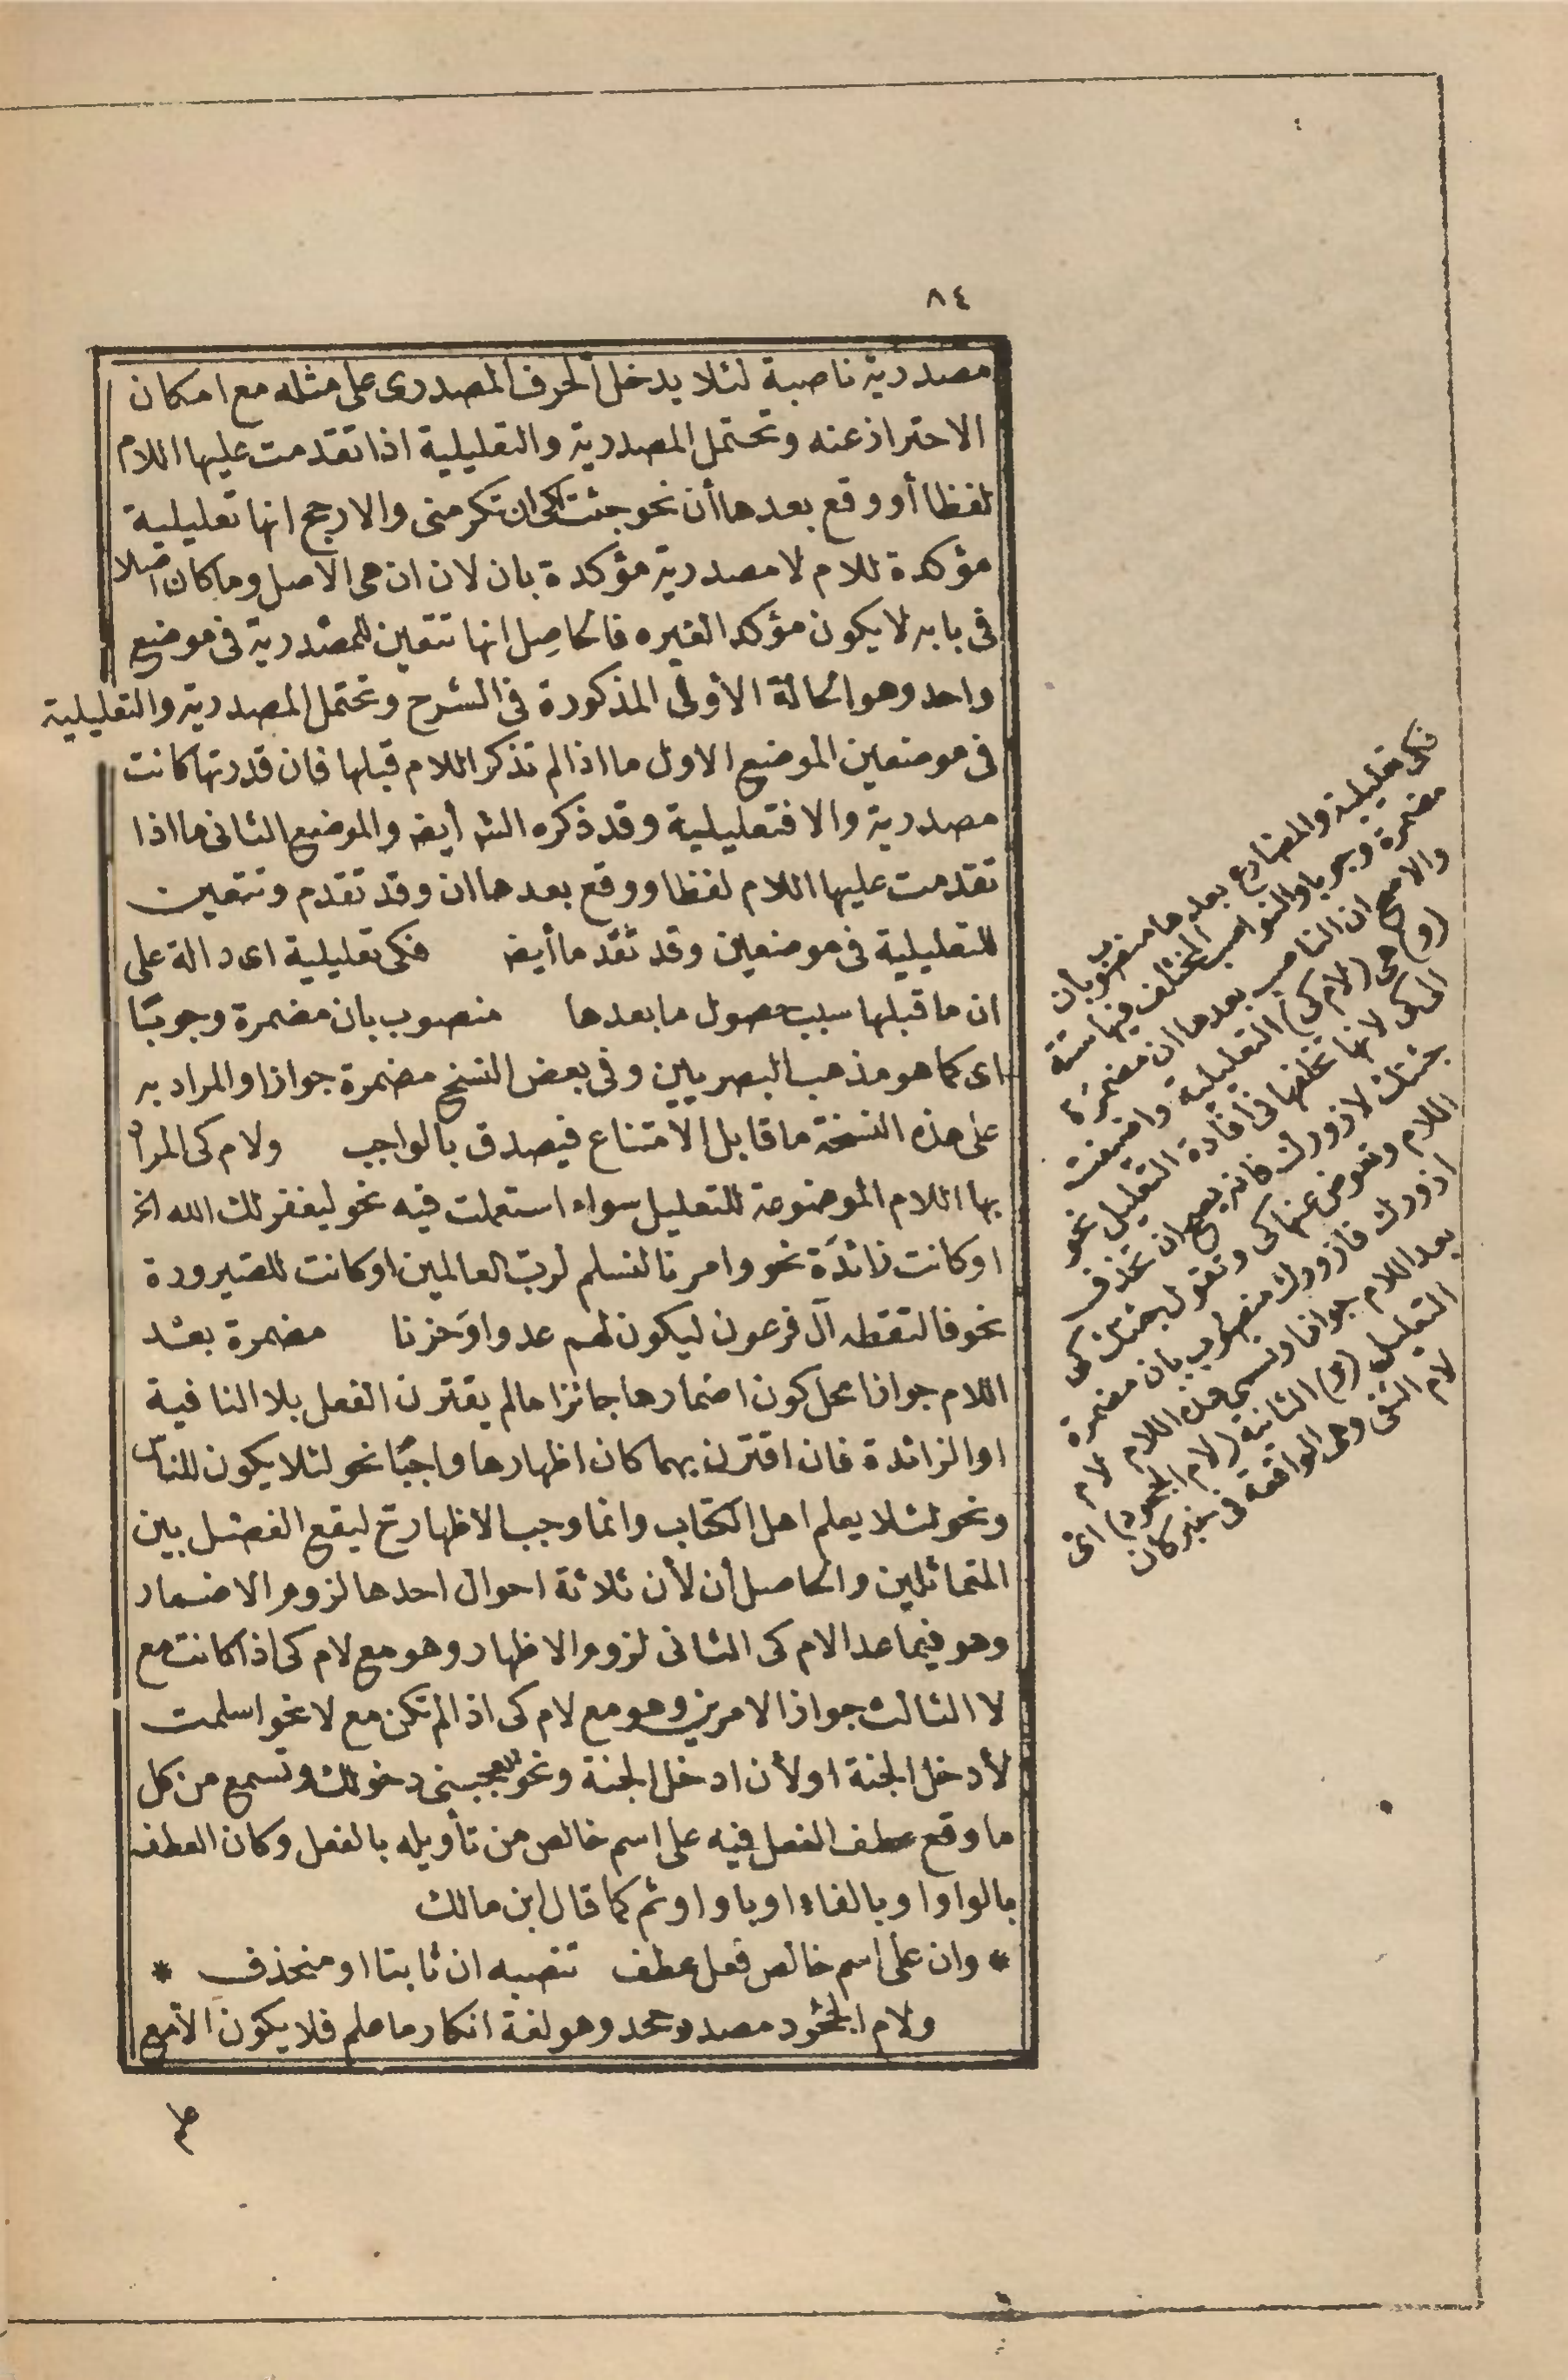 ٨٤
مصدرية ناصبة لئلا يدخل الحرف المصدرى على مثله مع امكان
الاحتراز عنه وتحتمل المصدرية والتعليلية اذا تقدمت عليها اللام
لفظا أو وقع بعدها أن نحو جئتك كى ان تكرمنى والارجح انها تعليلية
مؤكدة للام لا مصدرية مؤكدة بان لان ان هى الاصل وما كان اصلا
فى بابه لا يكون مؤكدا لغيره فالحاصل انها تتعين للمصدرية فى موضع
واحد وهو الحالة الأولى المذكورة فى الشرح وتحتمل المصدرية والتعليلية
فى موضعين الموضع الاول ما اذا لم تذكر اللام قبلها فان قدرتها كانت
مصدرية والا فتعليلية وقد ذكره الشه أيضه والموضع الثانى ما اذا
تقدمت عليها اللام لفظا ووقع بعدها ان وقد تقدم وتتعين
للتعليلية فى موضعين وقد تقدما أيضه فكى تعليلية اى دالة على
ان ما قبلها سبب حصول ما بعدها منصوب بان مضمرة وجوبًا
اى كما هو مذهب البصريين وفى بعض النسخ مضمرة جوازا والمراد به
على هذه النسخة ما قابل الامتناع فيصدق بالواجب ولام كى المراد
بها اللام الموضوعة للتعليل سواء استعملت فيه نحو ليغفر لك الله الخ
او كانت زائدة نحو وامرنا لنسلم لرب العالمين او كانت للصيرورة
نحو فالتقطه آل فرعون ليكون لهم عدوا وَحزنا مضمرة بعد
اللام جوازا محل كون اضمارها جائزا ما لم يقترن الفعل بلا النافية
او الزائدة فان اقترن بهما كان اظهارها واجبًا نحو لئلا يكون للناس
ونحو لئلا يعلم اهل الكتاب وانما وجب الاظهار ح ليقع الفصل بين
المتماثلين والحاصل أن لأن ثلاثة احوال احدها لزوم الاضمار
وهو فيما عدا لام كى الثانى لزوم الاظهار وهو مع لام كى اذا كانت مع
لا الثالث جواز الامرين وهو مع لام كى اذا لم تكن مع لا نحو اسلمت
لأدخل الجنة او لأن ادخل الجنة ونحو يعجبنى دخولك وتسمع من كل
ما وقع عطف الفعل فيه على اسم خالص من تأويله بالفعل وكان العطف
بالواو او بالفاء او باو او ثم كما قال ابن مالك
* وان على اسم خالص فعل عطف تنصبه ان ثابتا او منحذف *
ولام الجحود مصدر جحد وهو لغة انكار ما علم فلا يكون الا مع
علم
فكى تعليلية والمضارع بعدها منصوب بان
مضمرة وجوبا والنواصب المختلف فيها ستة
والاصح ان الناصب بعدها ان مضمرة
(و) هى (لام كى) التعليلية واضيفت
الى كى لانها تخلفها فى افادة التعليل نحو
جئتك لازورك فانه يصح ان تحذف
اللام وتعوض عنها كى وتقول جئتك كى
ازورك فازورك منصوب بان مضمرة
بعد اللام جوازا وتسمى هذه اللام لام
التعليل (و) الثانية (لام الجحود) اى
لام النفى وهى الواقعة فى خبر كان